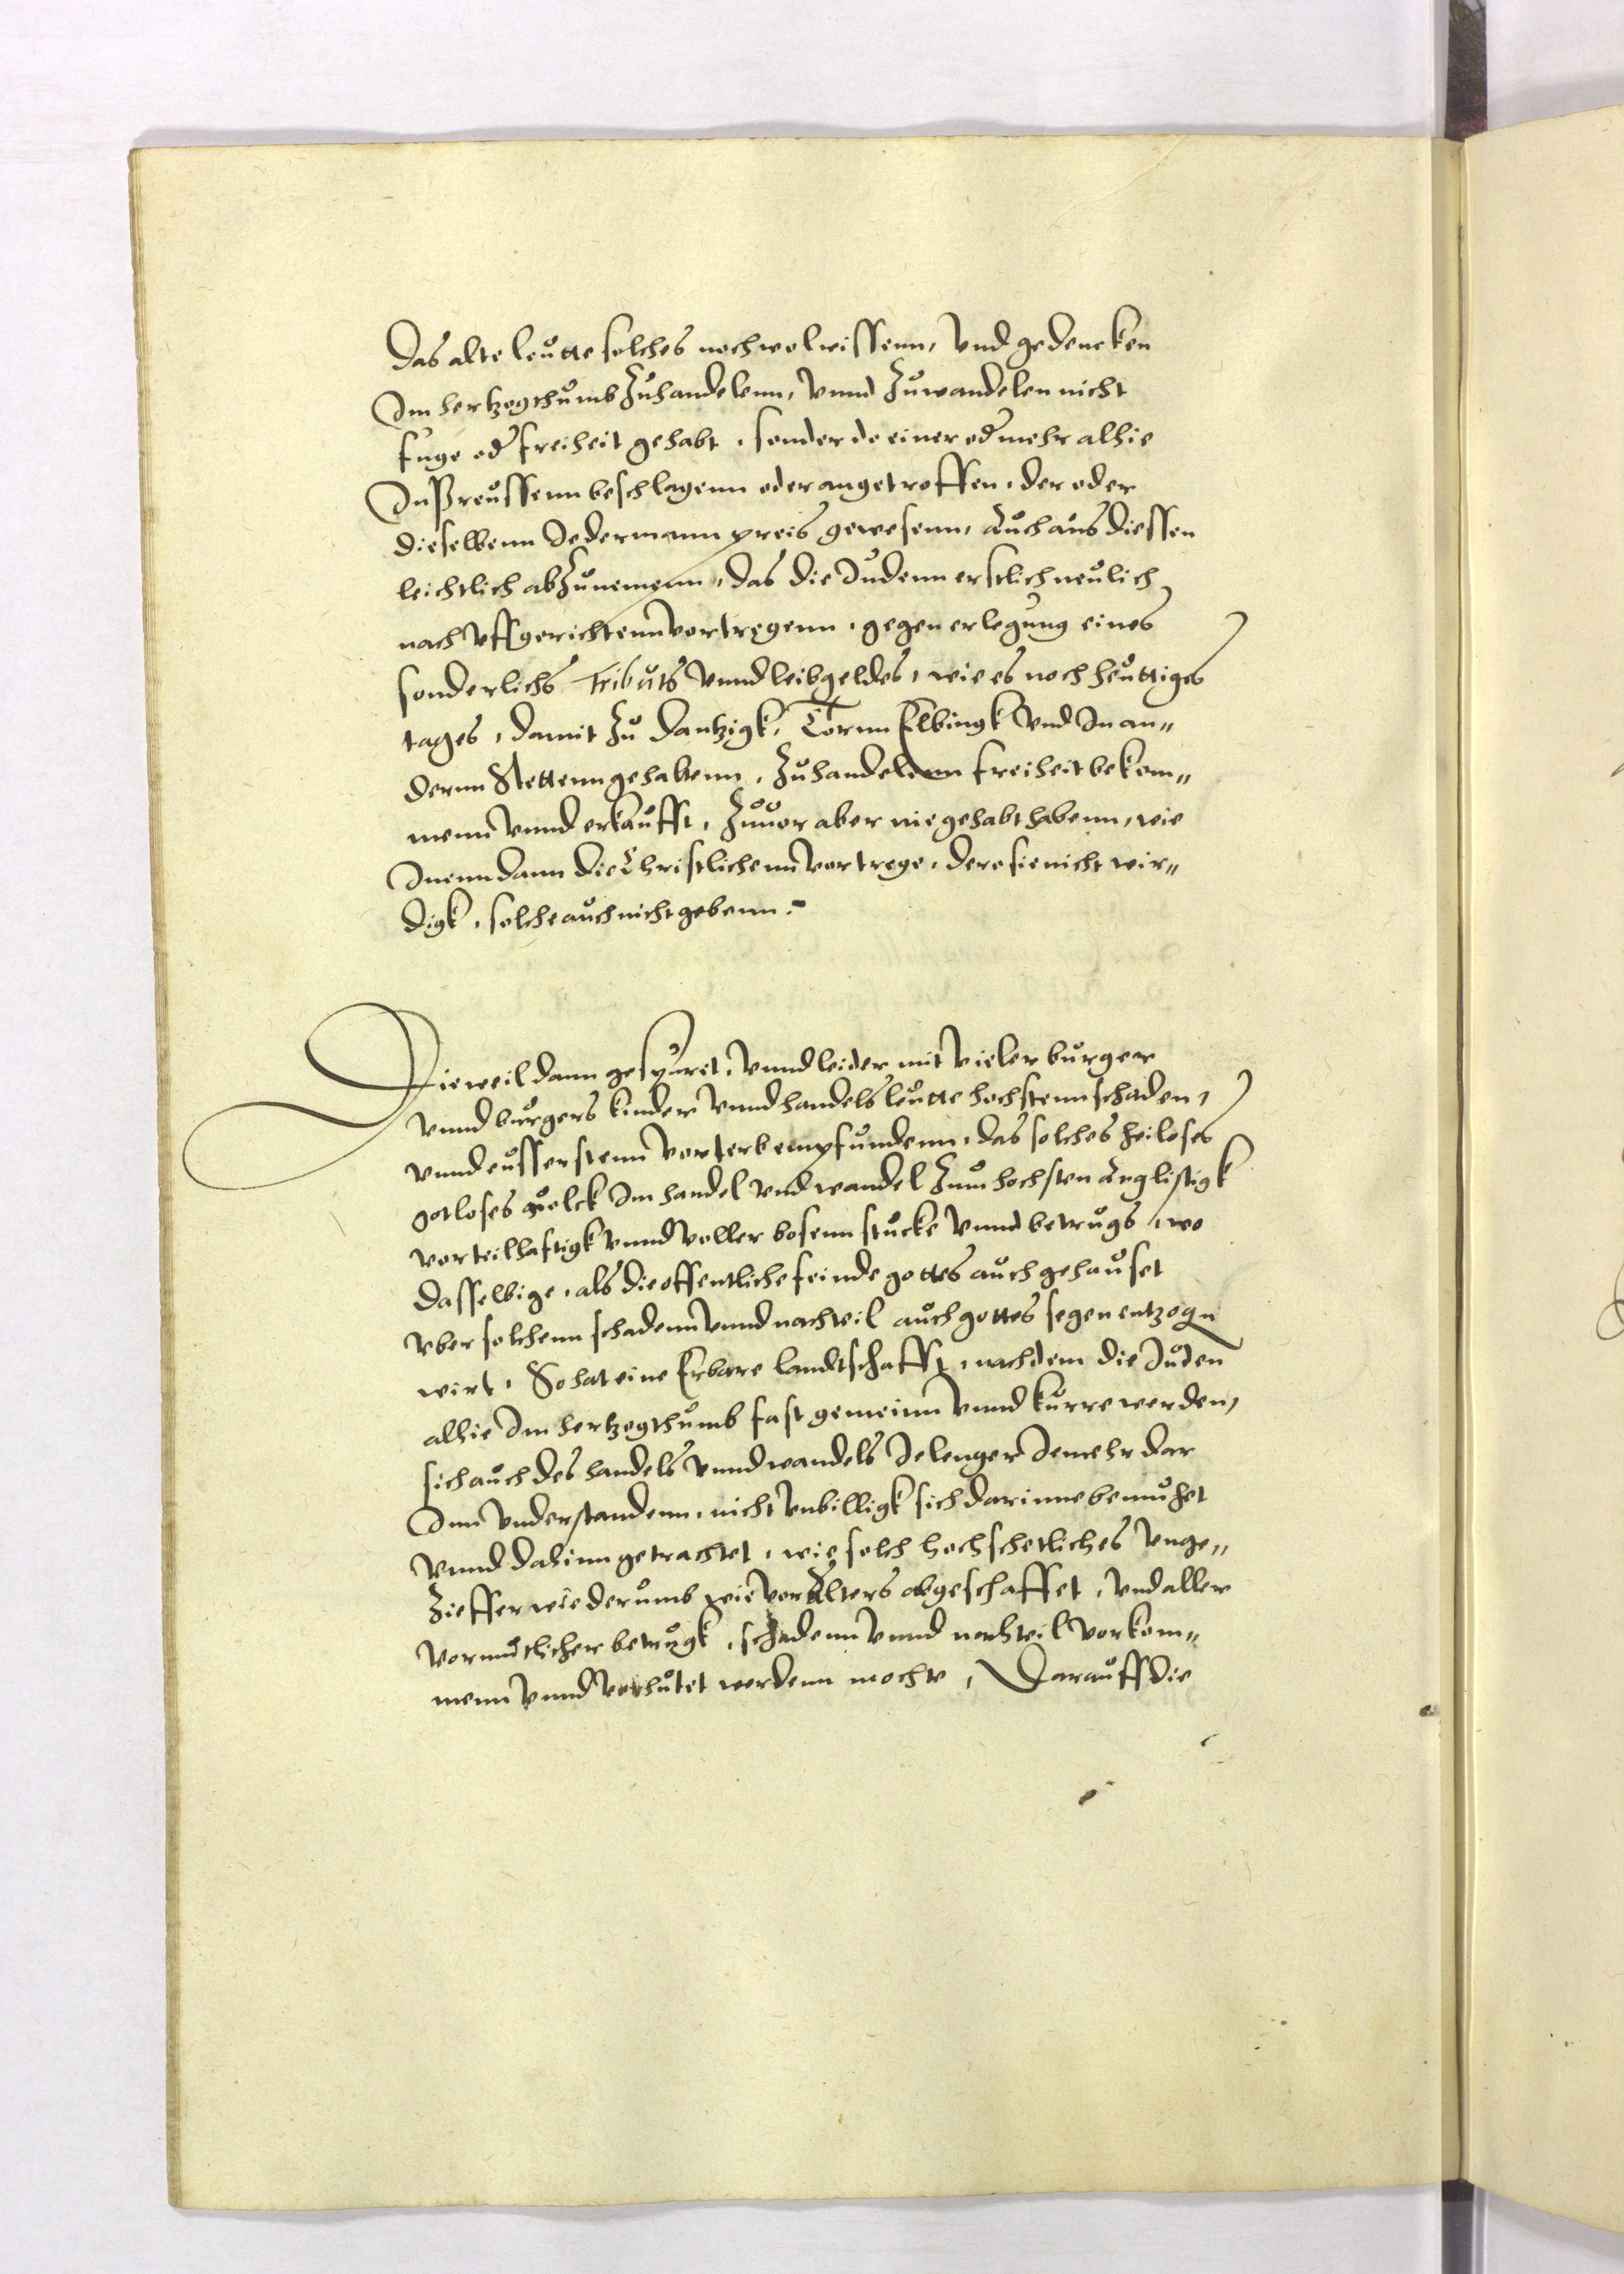 Das alte leutte solches noch wol wissenn, Vnd gedencken
Im hertzogthumb Zuhandelenn, vnnd Zuwandelen nicht
fuge od' freiheit gehabt, sonder do einer od' mehr alhie
In Preussenn beschlagenn oder angetroffen, der oder
dieselbenn Jedermann preis gewesenn, Auch aus diessen
leichtlich abZunemenn, das die Judenn erstlich neulich
nach vffgerichtenn vortregenn, gegen erlegung eines
sonderlichs Tributs vnnd leibgeldes, wie es noch heuttiges
tages, damit Zu Dantzigk, Tornn Elbingk vnd In an„
dernn Stettenn gehaltenn, Zuhandelenn freiheit bekom„
menn vnnd erkaufft, Zuuor aber nie gehabt habenn, wie
Inenn dann die Christlichenn vortrege, dere sie nicht wir„
digk, solche auch nicht gebenn.
Dieweil dann gespuret, vnnd leider mit vieler burger
vnnd burgers kinder vnnd handelsleutte hochstenn schaden,
vnnd eusserstenn vorterb empfundenn, das solches heiloses
gotloses volck Im handel vnd wandel Zum hochsten Arglistigk
vorteilhafftigk vnnd voller bosenn stucke vnnd betrugs, wo
dasselbige, als die offentliche feinde gottes auch gehauset
vber solchenn schadenn vnnd nachteil auch gottes segen entzogn
wirt, So hat eine Erbare landtschafft, nachdem die Juden
alhie Im hertzogthumb fast gemeinn vnnd kurre werden,
sich auch des handels vnnd wandels Jelenger Jemehr dar
Inn vnderstandenn, nicht vnbilligk sich darinne bemuhet
vnnd dahinn getrachtet, wie solch hochschetliches vnge„
Zieffer wiederumb wie vor Alters abgeschaffet, vnd aller
vormutlicher betrugk, schadenn vnnd nachteil vorkom„
menn vnnd vorhutet werdenn mochte, Darauff die